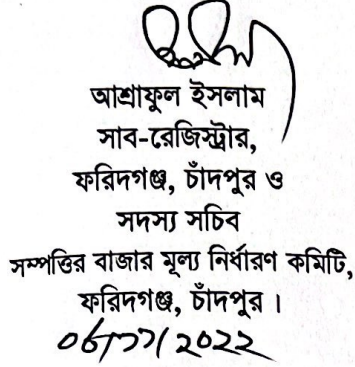 আশ্রাফুল ইসলাম
সাব-রেজিস্ট্রার,
ফরিদগঞ্জ, চাঁদপুর ও
সদস্য সচিব
সম্পত্তির বাজার মূল্য নির্ধারণ কমিটি,
ফরিদগঞ্জ, চাঁদপুর ।
০৬/১১/২০২২